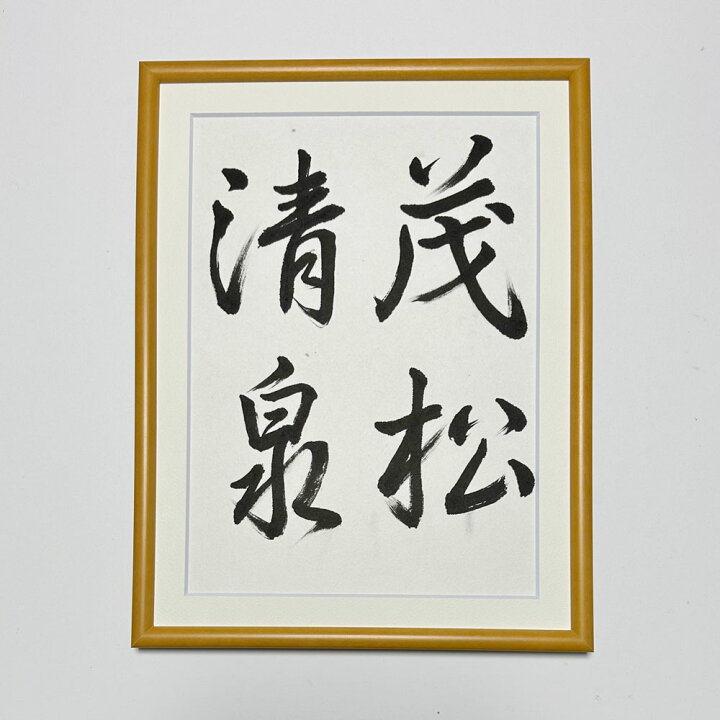 茂松
清泉